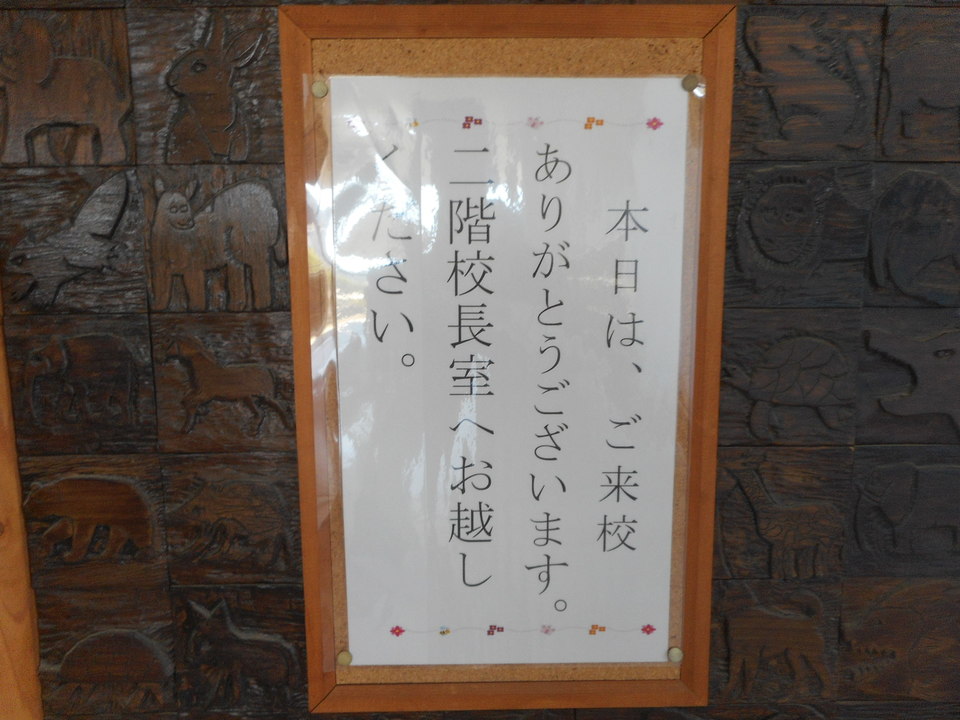 本日は、ご来校
ありがとうございます。
二階校長室へお越し
ください。